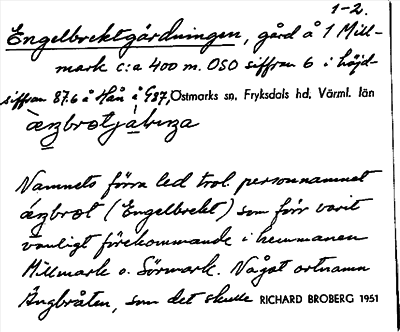 1-2.
Engelbrektgårdningen, gård å 1 Mill-
mark c:a 400 m. OSO siffran 6 i höjd-
siffran 87.6 å Hån å G37, Östmarks sn, Fryksdals hd, Värml. län
Namnets förra led trol. personnamnet
(Engelbrekt) som förr varit
vanligt förekommande i hemmanen
Millmark o. Sörmark. Något ortnamn
Ängbråten, som det skulle RICHARD BROBERG 1951